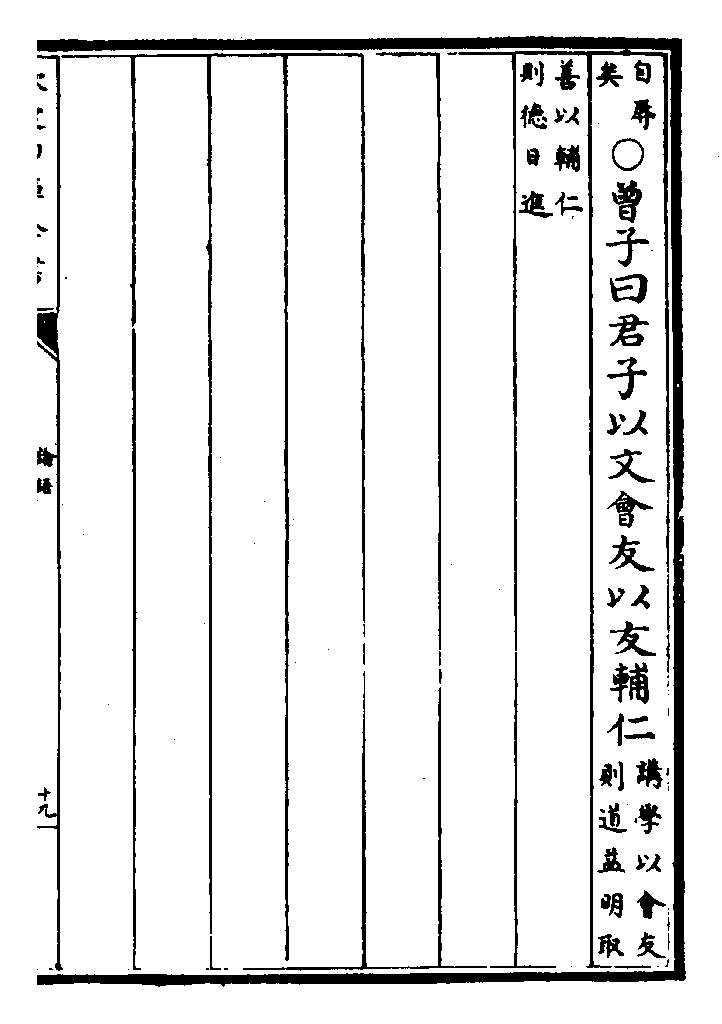 自辱
矣
○曾子曰君子以文會友以友輔仁
講學以會友
則道益明取
善以輔仁
則德日進
論語
十九